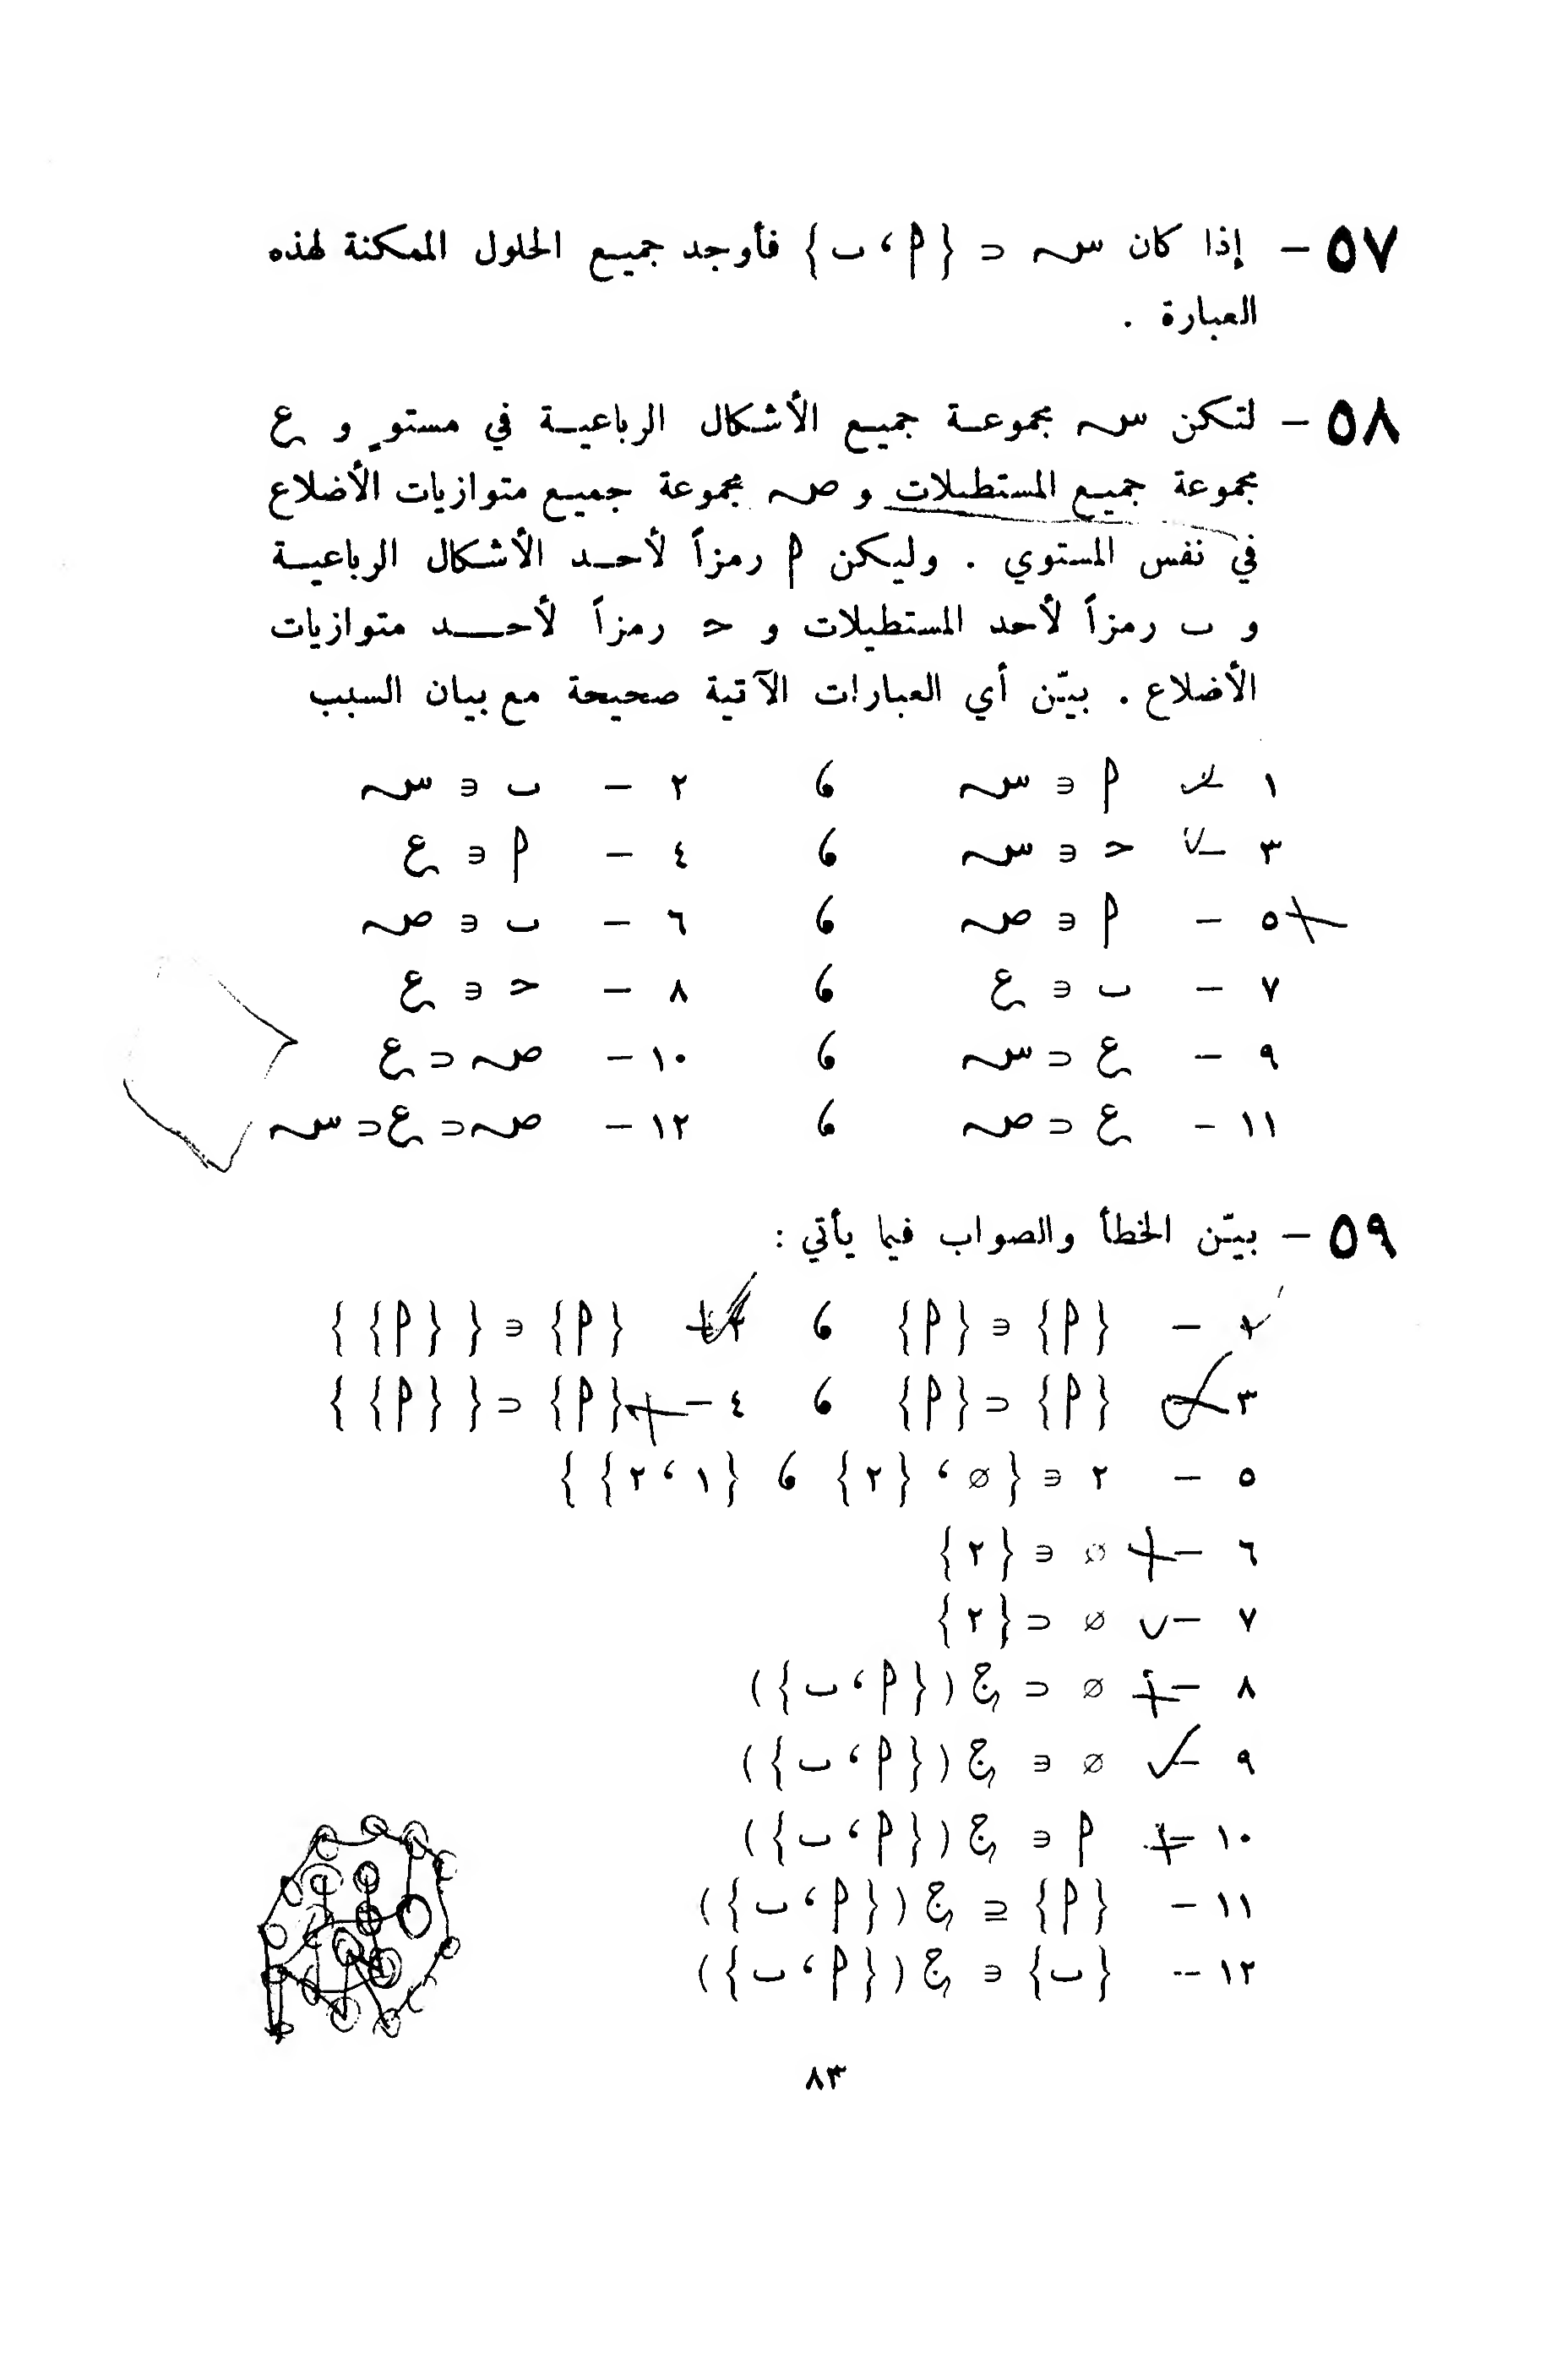 ٥٧ - إذا كان سہ ⊂ {أ ، ب} فأوجد جميع الحلول الممكنة لهذه
العبارة .
٥٨ - لتكن سہ مجموعة جميع الأشكال الرباعية في مستوٍ و ع
مجموعة جميع المستطيلات و صہ مجموعة جميع متوازيات الأضلاع
في نفس المستوي . وليكن أ رمزاً لأحد الأشكال الرباعية
و ب رمزاً لأحد المستطيلات و حـ رمزاً لأحد متوازيات
الأضلاع . بيّن أي العبارات الآتية صحيحة مع بيان السبب
١ - أ ∈ سہ ، ٢ - ب ∈ سہ
٣ - حـ ∈ سہ ، ٤ - أ ∈ ع
٥ - أ ∈ صہ ، ٦ - ب ∈ صہ
٧ - ب ∈ ع ، ٨ - حـ ∈ ع
٩ - ع ⊂ سہ ، ١٠ - صہ ⊂ ع
١١ - ع ⊂ صہ ، ١٢ - صہ ⊂ ع ⊂ سہ
٥٩ - بيّن الخطأ والصواب فيما يأتي :
١ - {أ} ∈ {أ} ، ٢ - {أ} ∈ { {أ} }
٣ - {أ} ⊂ {أ} ، ٤ - {أ} ⊂ { {أ} }
٥ - ٢ ∈ {∅ ، {٢} ، {١ ، ٢} }
٦ - ∅ ∈ {٢}
٧ - ∅ ⊂ {٢}
٨ - ∅ ⊂ ج ({أ ، ب})
٩ - ∅ ∈ ج ({أ ، ب})
١٠ - أ ∈ ج ({أ ، ب})
١١ - {أ} ⊆ ج ({أ ، ب})
١٢ - {ب} ∈ ج ({أ ، ب})
٨٣